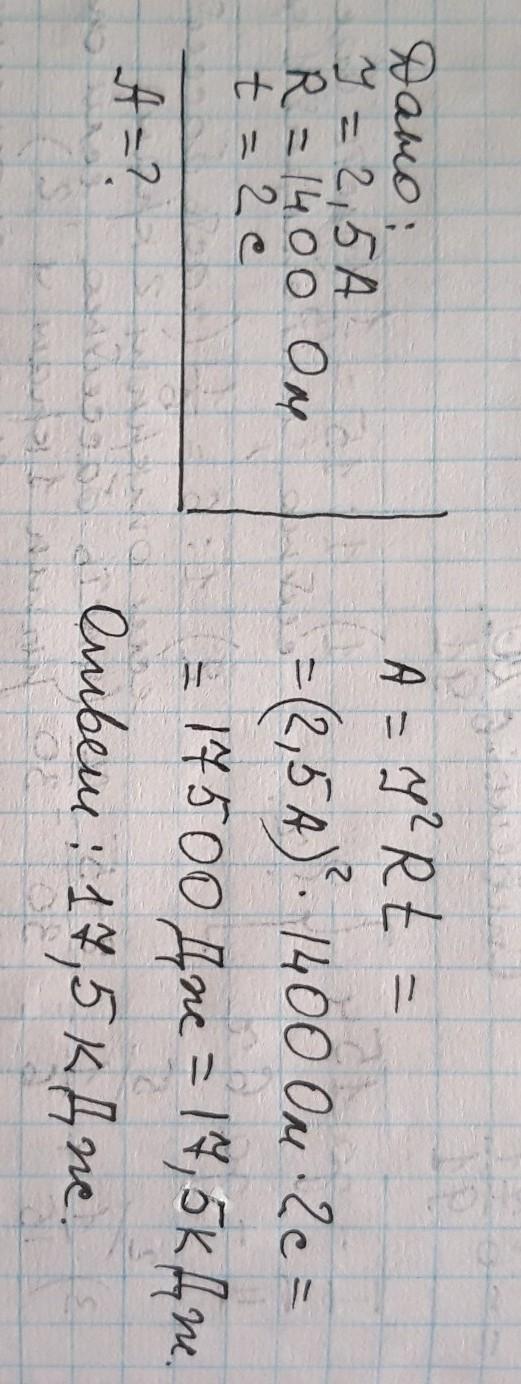 Дано:
У = 2,5А
R = 1400 Ом
t = 2с
A = ?
A = У²Rt =
= (2,5А)² · 1400 Ом · 2с =
= 17500 Дж = 17,5кДж.
Ответ: 17,5 кДж.